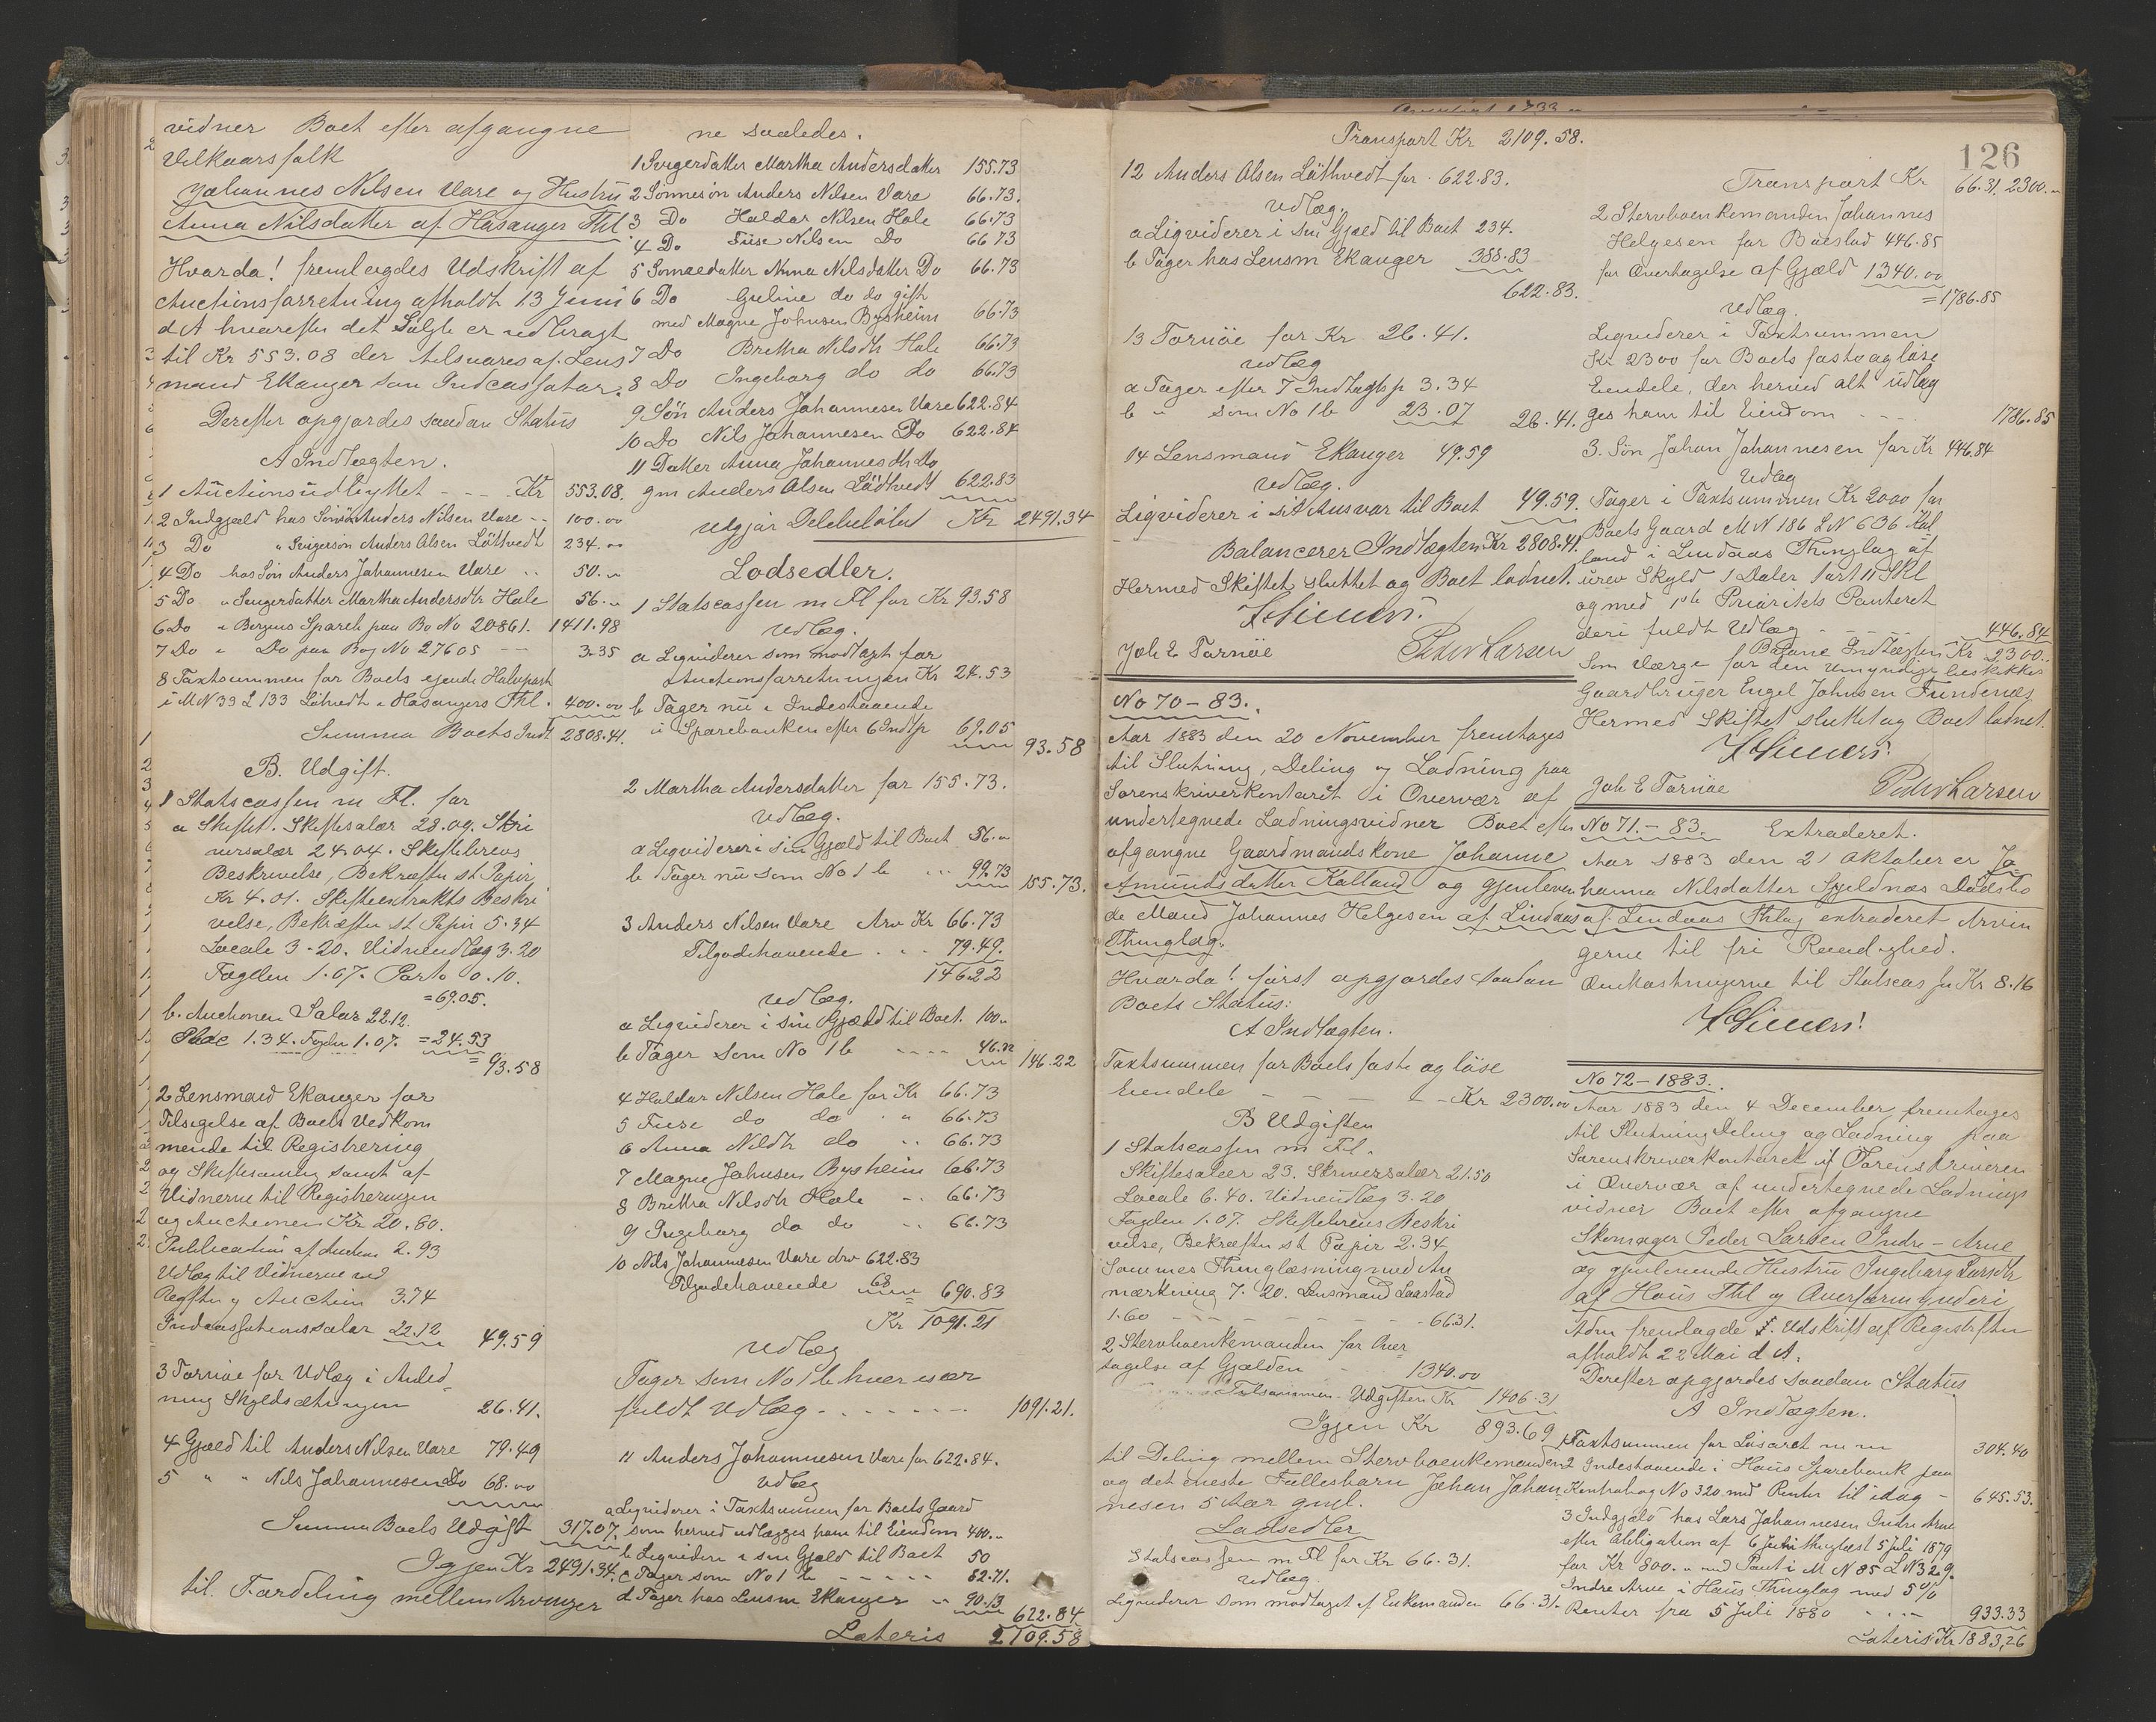 vidner Boet efter afgangne
Vilkaarsfolk
Johannes Nilsen Vare og Hustru
Anna Nilsdatter af Hosanger Thl.
Hvorda! fremlagdes Udskrift af
Auctionsforretning afholdt 13 Juni
d A hvorefter det Solgte er udbragt
til Kr 553.08 der tilsvares af Lens
mand Ekanger som Indcassator.
Derefter opgjordes saadan Status
A Indtægten.
1 Auctionsudbyttet - - - Kr 553.08.
2 Indgjæld hos Sønnesøn Anders Nilsen Vare - - 100.00
3 Do " Svigersøn Anders Olsen Löthvedt 234. "
4 Do hos Søn Anders Johannesen Vare .. 50. "
5 Do " Svigerdatter Martha Andersdtr Hole 56. "
6 Do i Bergens Spareb paa Bo No 20861. 1411.98
7 Do i Do paa Bog No 27605 - - 3.35
8 Taxtsummen for Boets eiende Halvpart
i M N 33 L 133 Löthvedt i Hosangers Thl. 400.00
Summa Boets Indt 2808.41.
B. Udgift.
1 Statscassen m Fl. for
a Skiftet. Skiftesalær 28.09. Skri
versalær 24.04. Skiftebrevs
Beskrivelse, Bekræft st Papir
Kr 4.01. Skifteextrakts Beskri
velse, Bekræft st Papir 5.34
Locale 3.20. Vidneudlæg 3.20
Fogden 1.07. Porto 0.10.
= 69.05.
b. Auctionen Salær 22.12.
1.34. Fogden 1.07. = 24.53
= 93.58
2 Lensmand Ekanger for
Tilsigelse af Boets Vedkom
mende til Registrering
og Skiftesamling samt af
Vidnerne til Registreringen
og Auctionen Kr 20.80.
Publication af Auction 2.93
Udlæg til Vidnerne ved
Regstrg Auction 3.74
Indcassationssalær 22.12 49.59
3 Tornöe for Udlæg i Anled
ning Skyldsætningen 26.41.
4 Gjæld til Anders Nilsen Vare 79.49
5 " " Nils Johannesen Do 68.00
Summa Boets Udgift 317.07.
Igjen Kr 2491.34.
til Fordeling mellem Arvinger
ne saaledes.
1 Svigerdatter Martha Andersdatter 155.73
2 Sønnesøn Anders Nilsen Vare 66.73.
3 Do Haldor Nilsen Hole 66.73
4 Do Nilsen Do 66.73
5 Sønnedatter Anna Nilsdatter Do 66.73
6 Do Guline do do gift
med Magne Johnsen Bysheim 66.73
7 Do Brita Nilsdtr Hole 66.73
8 Do Ingeborg do do 66.73
9 Søn Anders Johannesen Vare 622.84
10 Do Nils Johannesen Do 622.84
11 Datter Anna Johannesdtr Do
gm Anders Olsen Lödtvedt 622.83
udgjør Delebeløbet Kr 2491.34
Lodsedler.
1 Statscassen m Fl for Kr 93.58
Udlæg.
a Ligviderer som modtaget for
Auctionsforretningen Kr 24.53
b Tager nu i Indestaaende
i Sparebanken efter 6 Indtp 69.05
93.58
2 Martha Andersdatter for 155.73.
Udlæg.
a Ligviderer i sin Gjæld til Boet 56. "
b Tager nu som No 1 b ... 99.73
155.73.
3 Anders Nilsen Vare Arv Kr 66.73
Tilgodehavende . . 79.49.
146.22
Udlæg.
a Ligviderer i sin Gjæld til Boet. 100. "
b Tager som No 1 b - - - - 46.22
146.22
4 Haldor Nilsen Hole for Kr 66.73
5 do do . " 66.73
6 Anna Nilsdtr do .. 66.73
7 Magne Johnsen Bysheim 66.73
8 Brita Nilsdtr Hole .. 66.73
9 Ingeborg do do .. 66.73
10 Nils Johannesen Vare Arv 622.83
Tilgodehavende 68 690.83
Kr 1091.21
Udlæg
Tager som No 1 b hver især
fuldt Udlæg - - - - - - - 1091.21.
11 Anders Johannesen Vare for 622.84.
Udlæg
a Ligviderer i Taxtsummen for Boets Gaard
som herved udlægges ham til Eiendom 400. "
b Ligviderer i sin Gjæld til Boet 50
c Tager som No 1 b - - - - - 82.71.
d Tager hos Lensm Ekanger .. 90.13
622.84
Lateris 2109.58
Transport Kr 2109.58.
12 Anders Olsen Löthvedt for . 622.83.
Udlæg.
a Ligviderer i sin Gjæld til Boet 234.
b Tager hos Lensm Ekanger 388.83
622.83.
13 Tornöe for Kr 26.41.
Udlæg
a Tager efter 7 Indtægtsp 3.34
b " som No 1 b 23.07 26.41.
14 Lensmand Ekanger 49.59
Udlæg.
Ligviderer i sit Ansvar til Boet 49.59.
Balancerer Indtægten Kr 2808.41.
Hermed Skiftet sluttet og Boet lodnet.
Joh E Tornöe Peder Larsen
No 70 - 83.
Aar 1883 den 20 November fremtages
til Slutning, Deling og Lodning paa
Sorenskriverkontoret i Overvær af
undertegnede Lodningsvidner Boet efter
afgangne Gaardmandskone Johanne
Amundsdatter Kalland og gjenleven
de Mand Johannes Helgesen af Lindaas
Thinglag.
Hvorda! først opgjordes saadan
Boets Status:
A Indtægten.
Taxtsummen for Boets faste og løse
Eiendele - - - - - Kr 2300.00
B Udgiften
1 Statscassen m Fl.
Skiftesalær 23. Skriversalær 21.50
Locale 6.40. Vidneudlæg 3.20
Fogden 1.07. Skiftebrevs Beskri
velse, Bekræft st Papir 2.34
Sammes Thinglæsning med An
mærkning 7.20. Lensmand Laastad
1.60 - - - - - - - 66.31.
2 Stervboenkemanden for Over
tagelse af Gjælden - 1340.00
Tilsammen Udgiften Kr 1406.31
Igjen Kr 893.69
til Deling mellem Stervboenkemanden
og det eneste Fællesbarn Johan Johan
nesen 5 Aar gml.
Lodsedler
Statscassen m Fl for Kr 66.31.
Udlæg.
Ligviderer som modtaget af Enkemanden 66.31.
126
Transport Kr 66.31. 2300. "
2 Stervboenkemanden Johannes
Helgesen for Boeslod 446.85
for Overtagelse af Gjæld 1340.00
= 1786.85
Udlæg.
Ligviderer i Taxtsummen
Kr 2300 for Boets faste og løse
Eiendele, der herved alt udlæg
ges ham til Eiendom - - - 1786.85
3. Søn Johan Johannesen for Kr 446.84
Udlæg
Tager i Taxtsummen Kr 2000 for
Boets Gaard M N 186 L N 636 Kal
land i Lindaas Thinglag af
urev Skyld 1 Daler 1 ort 11 Skl
og med 1ste Prioritets Panteret
deri fuldt Udlæg - - - 446.84
Balance Indtægten Kr 2300. "
Som Værge for den umyndige beskikkes
Gaardbruger Engel Johnsen Fundenæs
Hermed Skiftet sluttet og Boet lodnet.
Joh E Tornöe Peder Larsen
No 71. - 83. Extraderet.
Aar 1883 den 21 Oktober er Jo
hanna Nilsdatter Spjeldnæs Dødsbo
af Lindaas Thlag extraderet Arvin
gerne til fri Raadighed.
Omkostningerne til Statscassen Kr 8.16
No 72 - 1883.
Aar 1883 den 4 December fremtages
til Slutning Deling og Lodning paa
Sorenskriverkontoret af Sorenskriveren
i Overvær af undertegnede Lodnings
vidner Boet efter afgangne
Skomager Peder Larsen Indre - Arne
og gjenlevende Hustru Ingeborg Larsdtr
af Hous Thl og Overformynderi
Adm fremlagde 1. Udskrift af Registrftn
afholdt 22 Mai d A.
Derefter opgjordes saadan Status
A Indtægten.
1 Taxtsummen for Løsøret m m 304.40
2 Indestaaende i Hous Sparebank paa
Kontrabog No 320 med Renter til idag - 645.53.
3 Indgjæld hos Lars Johannesen Indre Arne
efter Obligation af 6 Juni thinglæst 5 juli 1879
for Kr 800. " med Pant i M N 85 L N 329.
Indre Arne i Hous Thinglag med 5 %
Renter fra 5 Juli 1880 . . . - 933.33
Lateris Kr 1883,26